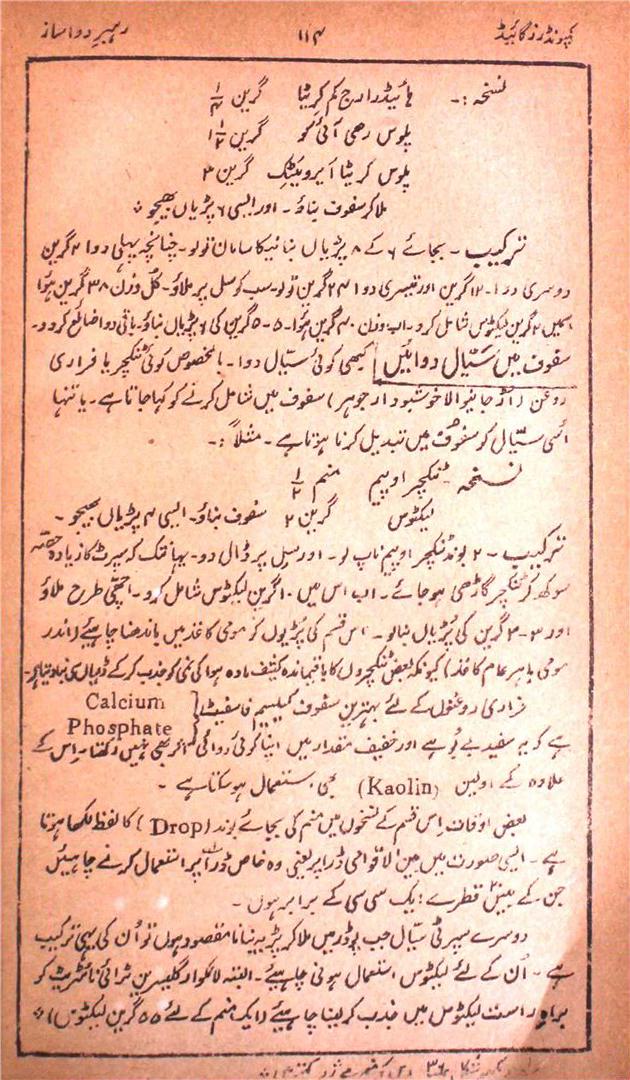 کمپونڈرز گائیڈ ۱۱۴ رہبرِ دواساز
نسخہ :- ہائیڈرارج کم کریٹا گرین ۱/۴
پلوس رھی آئی کمو گرین ۱/۲ ۱
پلوس کریٹا ایرومیٹک گرین ۳
ملاکر سفوف بناؤ ۔ اور ایسی ۶ پڑیاں بھیجو ؞
ترکیب ۔ بجائے ۶ کے ۸ پڑیاں بنانیکا سامان تولو ۔ چنانچہ پہلی دوا ۲ گرین
دوسری دوا ۔ ۱۲ گرین اور تیسری دوا ۲۴ گرین تولو ۔ سب کو سل پر ملاؤ ۔ کل وزن ۳۸ گرین ہوا
اسمیں ۲ گرین لیکٹوس شامل کرو ۔ اب وزن ۴۰ گرین ہوا ۔ ۵ ۔ ۵ گرین کی ۶ پڑیاں بناؤ ۔ باقی دوا ضائع کر دو ۔
سفوف میں سیّال دوائیں کبھی کوئی سیّال دوا ۔ بالخصوص کوئی ٹنکچر یا فراری
روغن (اڑ جانیوالا خوشبودار جوہر) سفوف میں شامل کرنے کو کہا جاتا ہے ۔ یا تنہا
اُسی سیّال کو سفوف میں تبدیل کرنا ہوتا ہے ۔ مثلاً :-
نسخہ ۔ ٹنکچر اوپیم منم ۱/۲
لیکٹوس گرین ۲ سفوف بناؤ ۔ ایسی ۴ پڑیاں بھیجو ۔
ترکیب ۔ ۲ بوند ٹنکچر اوپیم ناپ لو ۔ اور سیل پر ڈال دو ۔ یہانتک کہ سپرٹ کا زیادہ حصّہ
سوکھ کر ٹنکچر گاڑھی ہو جائے ۔ اب اس میں ۱۰ گرین لیکٹوس شامل کرو ۔ اچھی طرح ملاؤ
اور ۳ ۔ ۳ گرین کی پڑیاں بنالو ۔ اس قسم کی پڑیوں کو مومی کاغذ میں باندھنا چاہیئے (اندر
مومی باہر عام کاغذ) کیونکہ بعض ٹنکچروں کا باقیماندہ کثیف مادہ ہوا کی نمی کو جذب کر کے
فراری روغنوں کے لئے بہترین سفوف کیلسیم فاسفیٹ Calcium Phosphate
ہے کہ یہ سفید بے بُو ہے اور خفیف مقدار میں اپنا کوئی دوائی اثر بھی نہیں رکھتا ۔ اِس کے
علاوہ کے اولین (Kaolin) بھی استعمال ہو سکتا ہے ۔
بعض اوقات اِس قسم کے نسخوں میں منم کی بجائے بوند (Drop) کا لفظ لکھا ہوتا
ہے ۔ ایسی صورت میں بین الاقوامی ڈراپر یعنی وہ خاص ڈراپر استعمال کرنے چاہئیں
جن کے بیس قطرے ایک سی سی کے برابر ہوں ۔
دوسرے سپرٹی سیّال جب پوڈر میں ملاکر پڑیہ بنانا مقصود ہوں تو اُن کی یہی ترکیب
ہے ۔ اُن کے لئے لیکٹوس استعمال ہونی چاہیئے ۔ البتہ لائکوار گلیسرین ٹرائی نائٹریٹ کو
براہِ راست لیکٹوس میں جذب کر لینا چاہیئے (ایک منم کے لئے ۵۵ گرین لیکٹوس) ؞